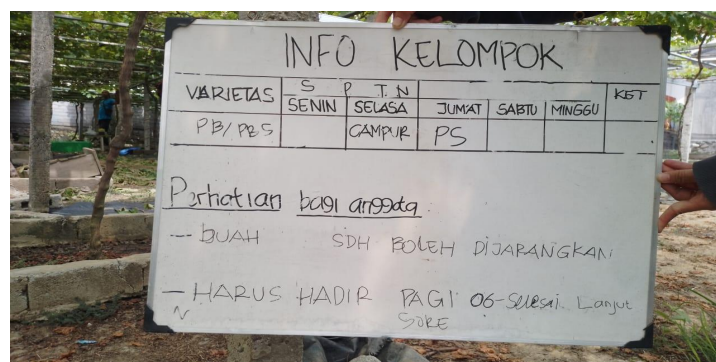 INFO KELOMPOK
VARIETAS S P T N KET
SENIN SELASA JUMAT SABTU MINGGU
PB/PBS CAMPUR PS
Perhatian bagi anggota
- BUAH SDH BOLEH DIJARANGKAN
- HARUS HADIR PAGI 06-selesai Lanjut
SORE